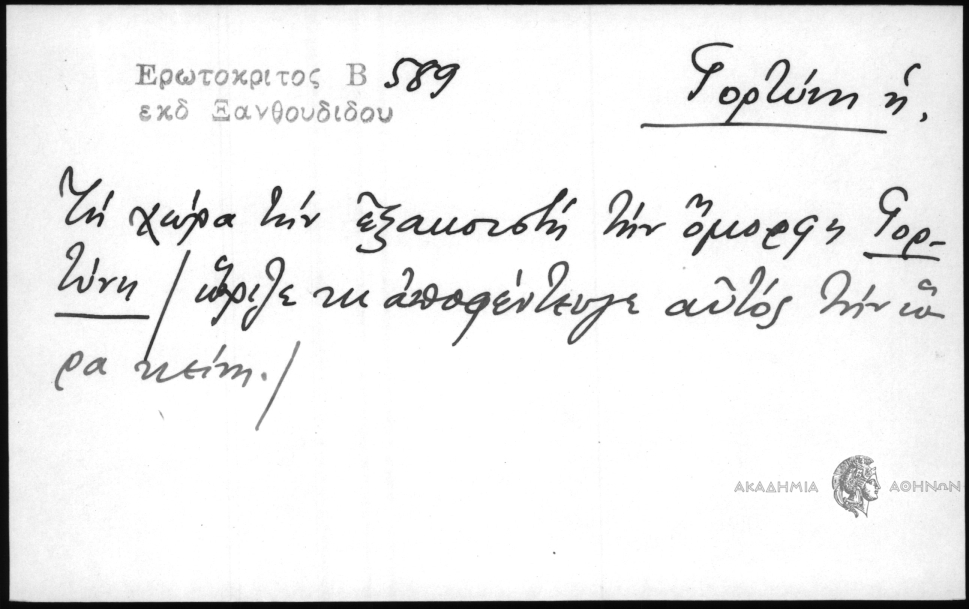 Ερωτοκριτος Β 589
εκδ Ξανθουδιδου
Γορτύνη ἡ.
Τὴ χώρα τὴν ἐξακουστὴ τὴν ὄμορφη Γορ-
τύνη / ὥριζε κι ἀποφέντευγε αὐτός τὴν ὥ-
ρα κείνη./
ΑΚΑΔΗΜΙΑ ΑΘΗΝΩΝ